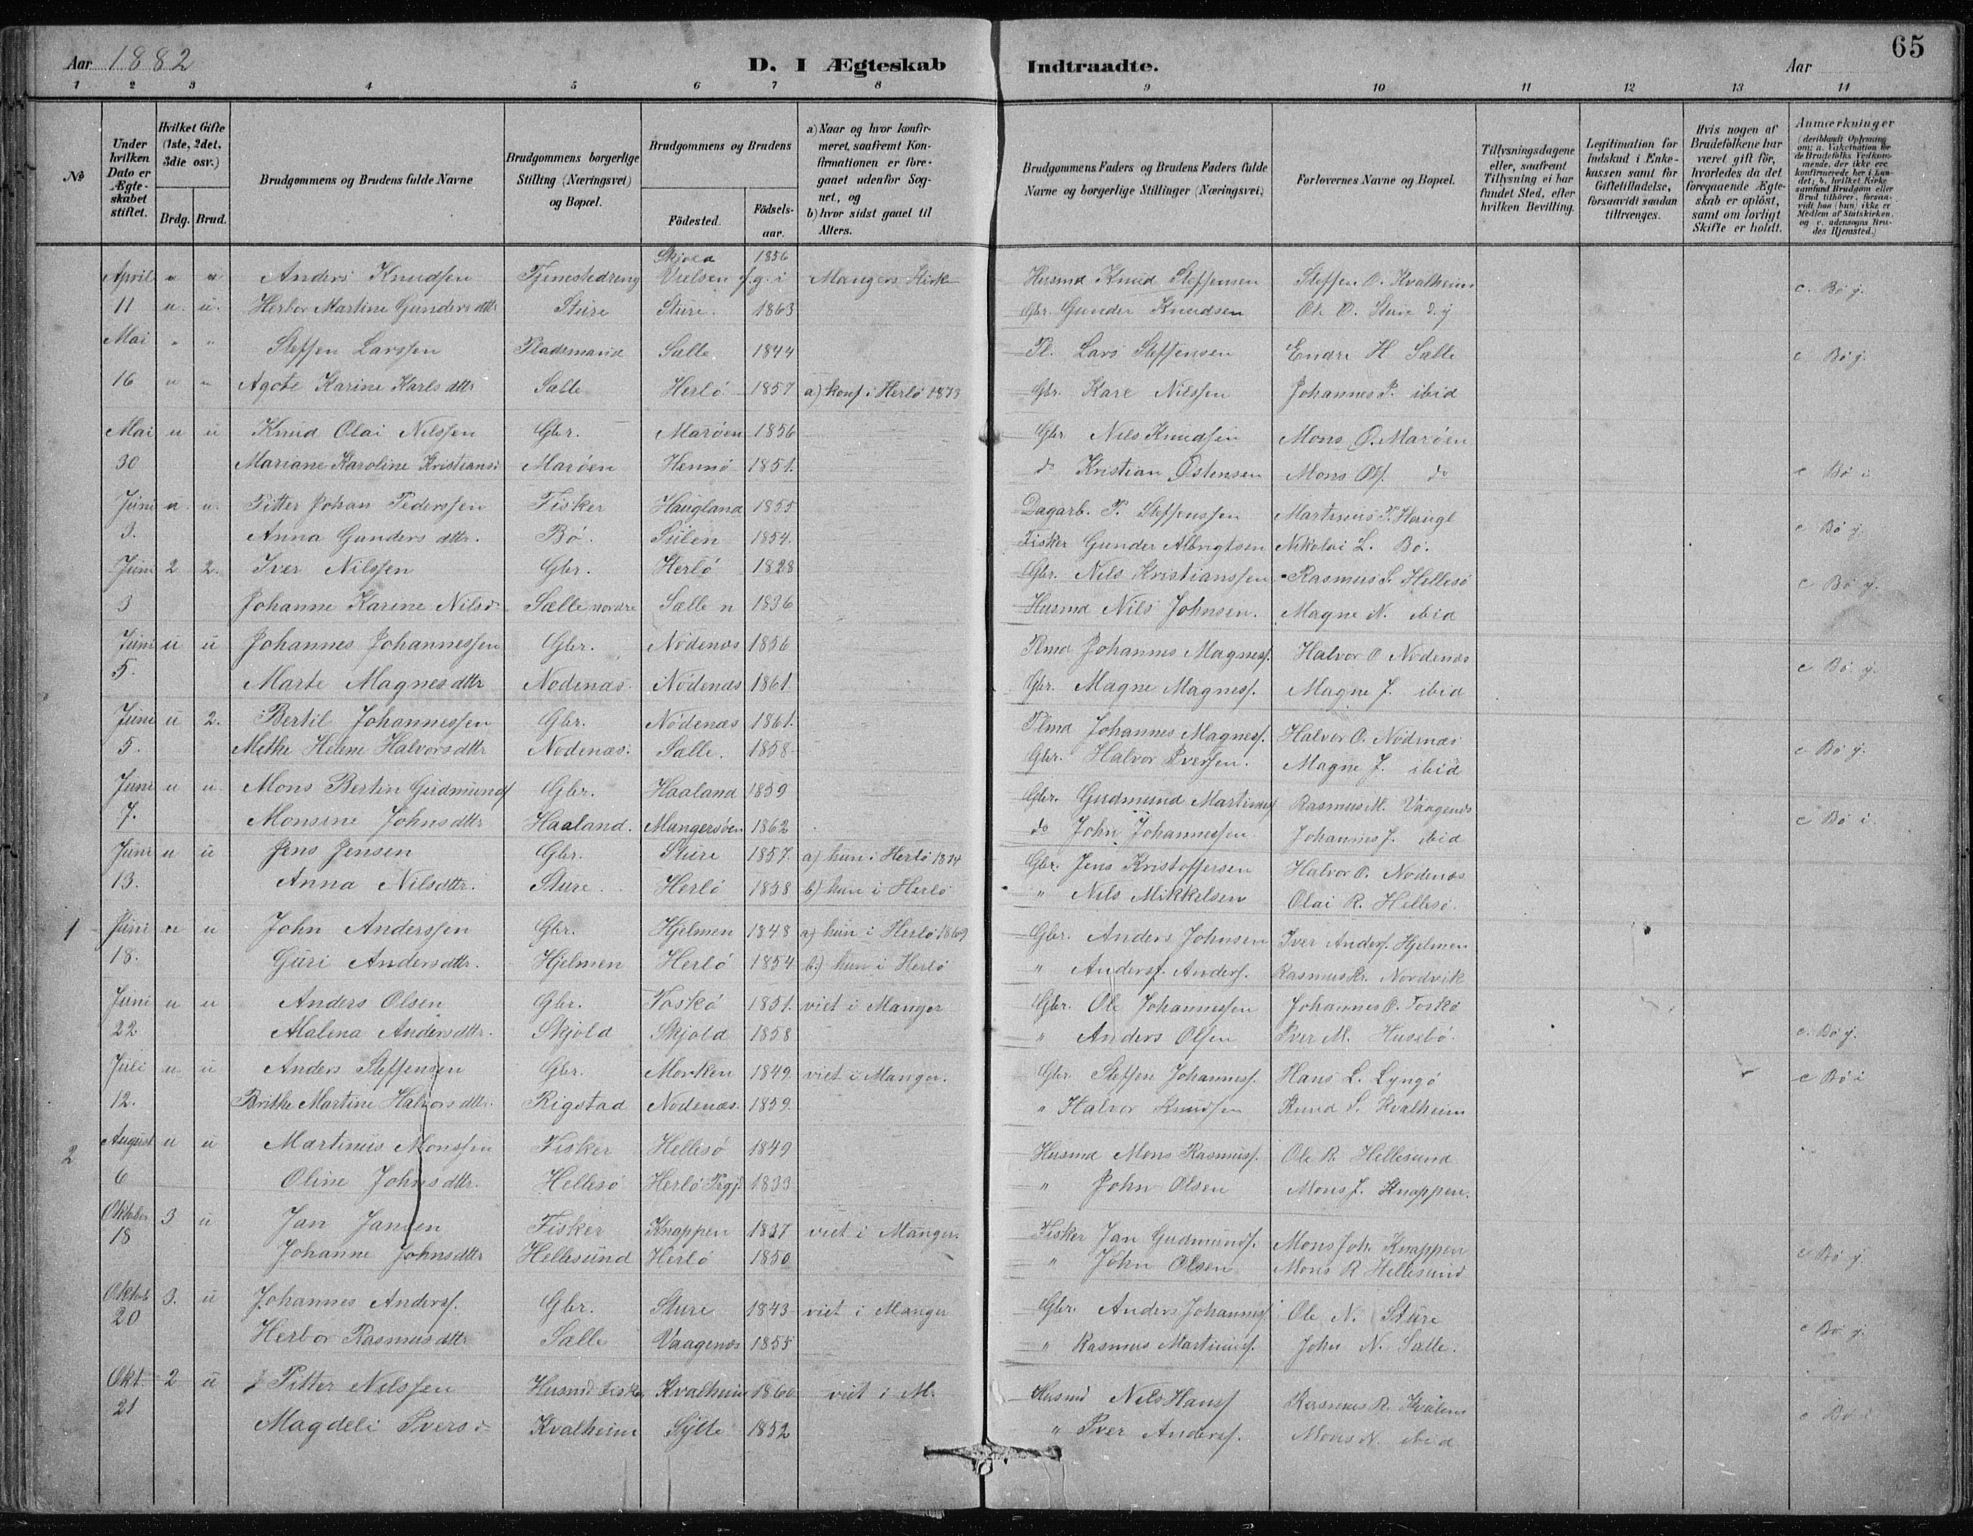 65
Aar 1882 D. I Ægteskab Indtraadte. Aar
1 2 3 4 5 6 7 8 9 10 11 12 13 14
№
Under hvilken Dato er Ægteskabet stiftet.
Hvilket Gifte (1ste, 2det, 3die osv.)
Brdg. Brud.
Brudgommens og Brudens fulde Navne
Brudgommens borgerlige Stilling (Næringsvei) og Bopæl.
Brudgommens og Brudens
Födested. Födselsaar.
a) Naar og hvor konfirmeret, saafremt Konfirmationen er foregaaet udenfor Sognet, og
b) hvor sidst gaaet til Alters.
Brudgommens Faders og Brudens Faders fulde Navne og borgerlige Stillinger (Næringsvei)
Forlovernes Navne og Bopæl.
Tillysningsdagene eller, saafremt Tillysning ei har fundet Sted, efter hvilken Bevilling.
Legitimation for Indskud i Enkekassen samt for Giftetilladelse, forsaavidt saadan tiltrænges.
Hvis nogen af Brudefolkene har været gift för, hvorledes da det foregaaende Ægteskab er oplöst, samt om lovligt Skifte er holdt.
Anmærkninger
Skjold 1856
April " " Anders Knudsen Tjenestedreng g. i Mangers Kirk Husmd Knud Steffensen Steffen O. Kvalheim c. Bø y.
11 u. u. Herbor Martine Gunders dttr Sture Sture. 1863 Gbr. Gunder Knudsen Ole O. Sture
Mai " " Steffen Larssen Pladsmand Sælle 1844 Pl. Lars Steffensen Endre H Sælle c Bø y.
16 u u Agote Karine Karls dttr Sælle Herlø 1857 a) konf i Herlø 1873 Gbr. Kare Nilssen Johannes P. ibid
Mai u u Knud Olai Nilssen Gbr. Marøen 1856 Gbr Nils Knudsen Mons O. Marøen
30 Mariane Karoline Kristians Marøen Hennø 1851. do Kristian Østensen Mons Ols. do c Bø i
Juni u. u. Pitter Johan Pederssen Fisker Haugland 1855 Dagarb. P. Steffenssen Martinus P. Haugl c Bø y.
3. Anna Gunders dttr. Bø. Sulen 1854. Fisker Gunder Albrigtsen Nikolai L. Bø.
Juni 2 2. Iver Nilssen Gbr. Herlø 1828 Gbr. Nils Kristianssen Rasmus S. Hellesø c Bø y.
3 Johanne Karine Nilsd Sælle nordre Sælle n 1836 Husmd Nils Johnsen. Magne N. ibid
Juni u u Johannes Johannessen Gbr. Nødenæs 1856 Johannes Magness. Halvor O. Nødenæs c Bø y.
5. Marte Magnes dttr Nødenæs. Nødenæs 1861. Gbr. Magne Magness. Magne J. ibid
Juni u 2. Bertil Johannessen Gbr. Nødenæs 1861. Plmd Johannes Magness. Halvor O. Nødenæs c Bø y.
5. Methe Helene Halvors dttr Nødenæs. Sælle. 1858 Gbr. Halvor Iverssen. Magne J. ibid
Juni u u Mons Bertin Gudmunds Gbr. Haaland 1859 Gbr. Gudmund Martinus Rasmus M. Vaagenæs c Bø i.
7. Monsine Johns dttr Haaland. Mangersøen 1862 do John Johannessen Johannes J. ibid
Juni u u Jens Jensen Gbr. Sture 1857. a) hun i Herlø 1874 Gbr. Jens Kristoffersen Halvor O. Nødenæs
13. Anna Nilsdttr. Sture Herlø 1858 b) hun i Herlø " Nils Mikkelsen Olai R. Hellesø.
1 Juni u u John Anderssen Gbr. Hjelmen 1848 a) hun i Herlø 1869 Gbr. Anders Johnsen Iver Anders. Hjelmen
18. Guri Anders dttr. Hjelmen Herlø 1854 b.) hun i Herlø " Anders. Anders. Rasmus Kr. Nordvik
Juni u u Anders Olsen Gbr. Toskø 1851. viet i Manger Gbr. Ole Johannessen Johannes O. Toskø
22 Malena Anders dttr. Skjold Skjold 1858 " Anders Olsen Iver M. Husebø. c. Bø y.
Juli u. u Anders Steffensen Gbr. Morken 1849 viet i Manger. Gbr Steffen Johanness. Hans L. Lyngø c Bø i
12. Brithe Martine Halvors dttr. Rigstad Nødenæs. 1859. " Halvor Knudsen Knud S. Kvalheim
2 August u u Martinus Monssen Fisker Hellesø 1849 Husmd Mons Rasmus. Ole R. Hellesund
6 Oline Johns dttr. Hellesø Herlø Prgj. 1833 " John Olsen Mons J. Knappen.
Oktober 3 u Jan Jansen Fisker Knappen 1837 viet i Manger. Fisker Jan Gudmunds. Mons Joh. Knappen
18 Johanne Johnsdttr Hellesund Herlø 1850 " John Olsen Mons R Hellesund c Bø y.
Oktob 3. u Johannes Anderss. Gbr. Sture 1843 viet i Manger Gbr. Anders Johannes. Ole N. Sture
20 Herbor Rasmus dttr Sælle Vaagenæs 1855 " Rasmus Martinus. John N. Sælle. c Bø y.
Okt. 2 u Pitter Nilssen Husmd Fisker Kvalheim 1860 viet i M. Husmd Nils Hanss Rasmus R. Kvalem
21 Magdeli Ivers d Kvalheim Sylte 1852 " Iver Anders. Mons N. ibid c Bø i